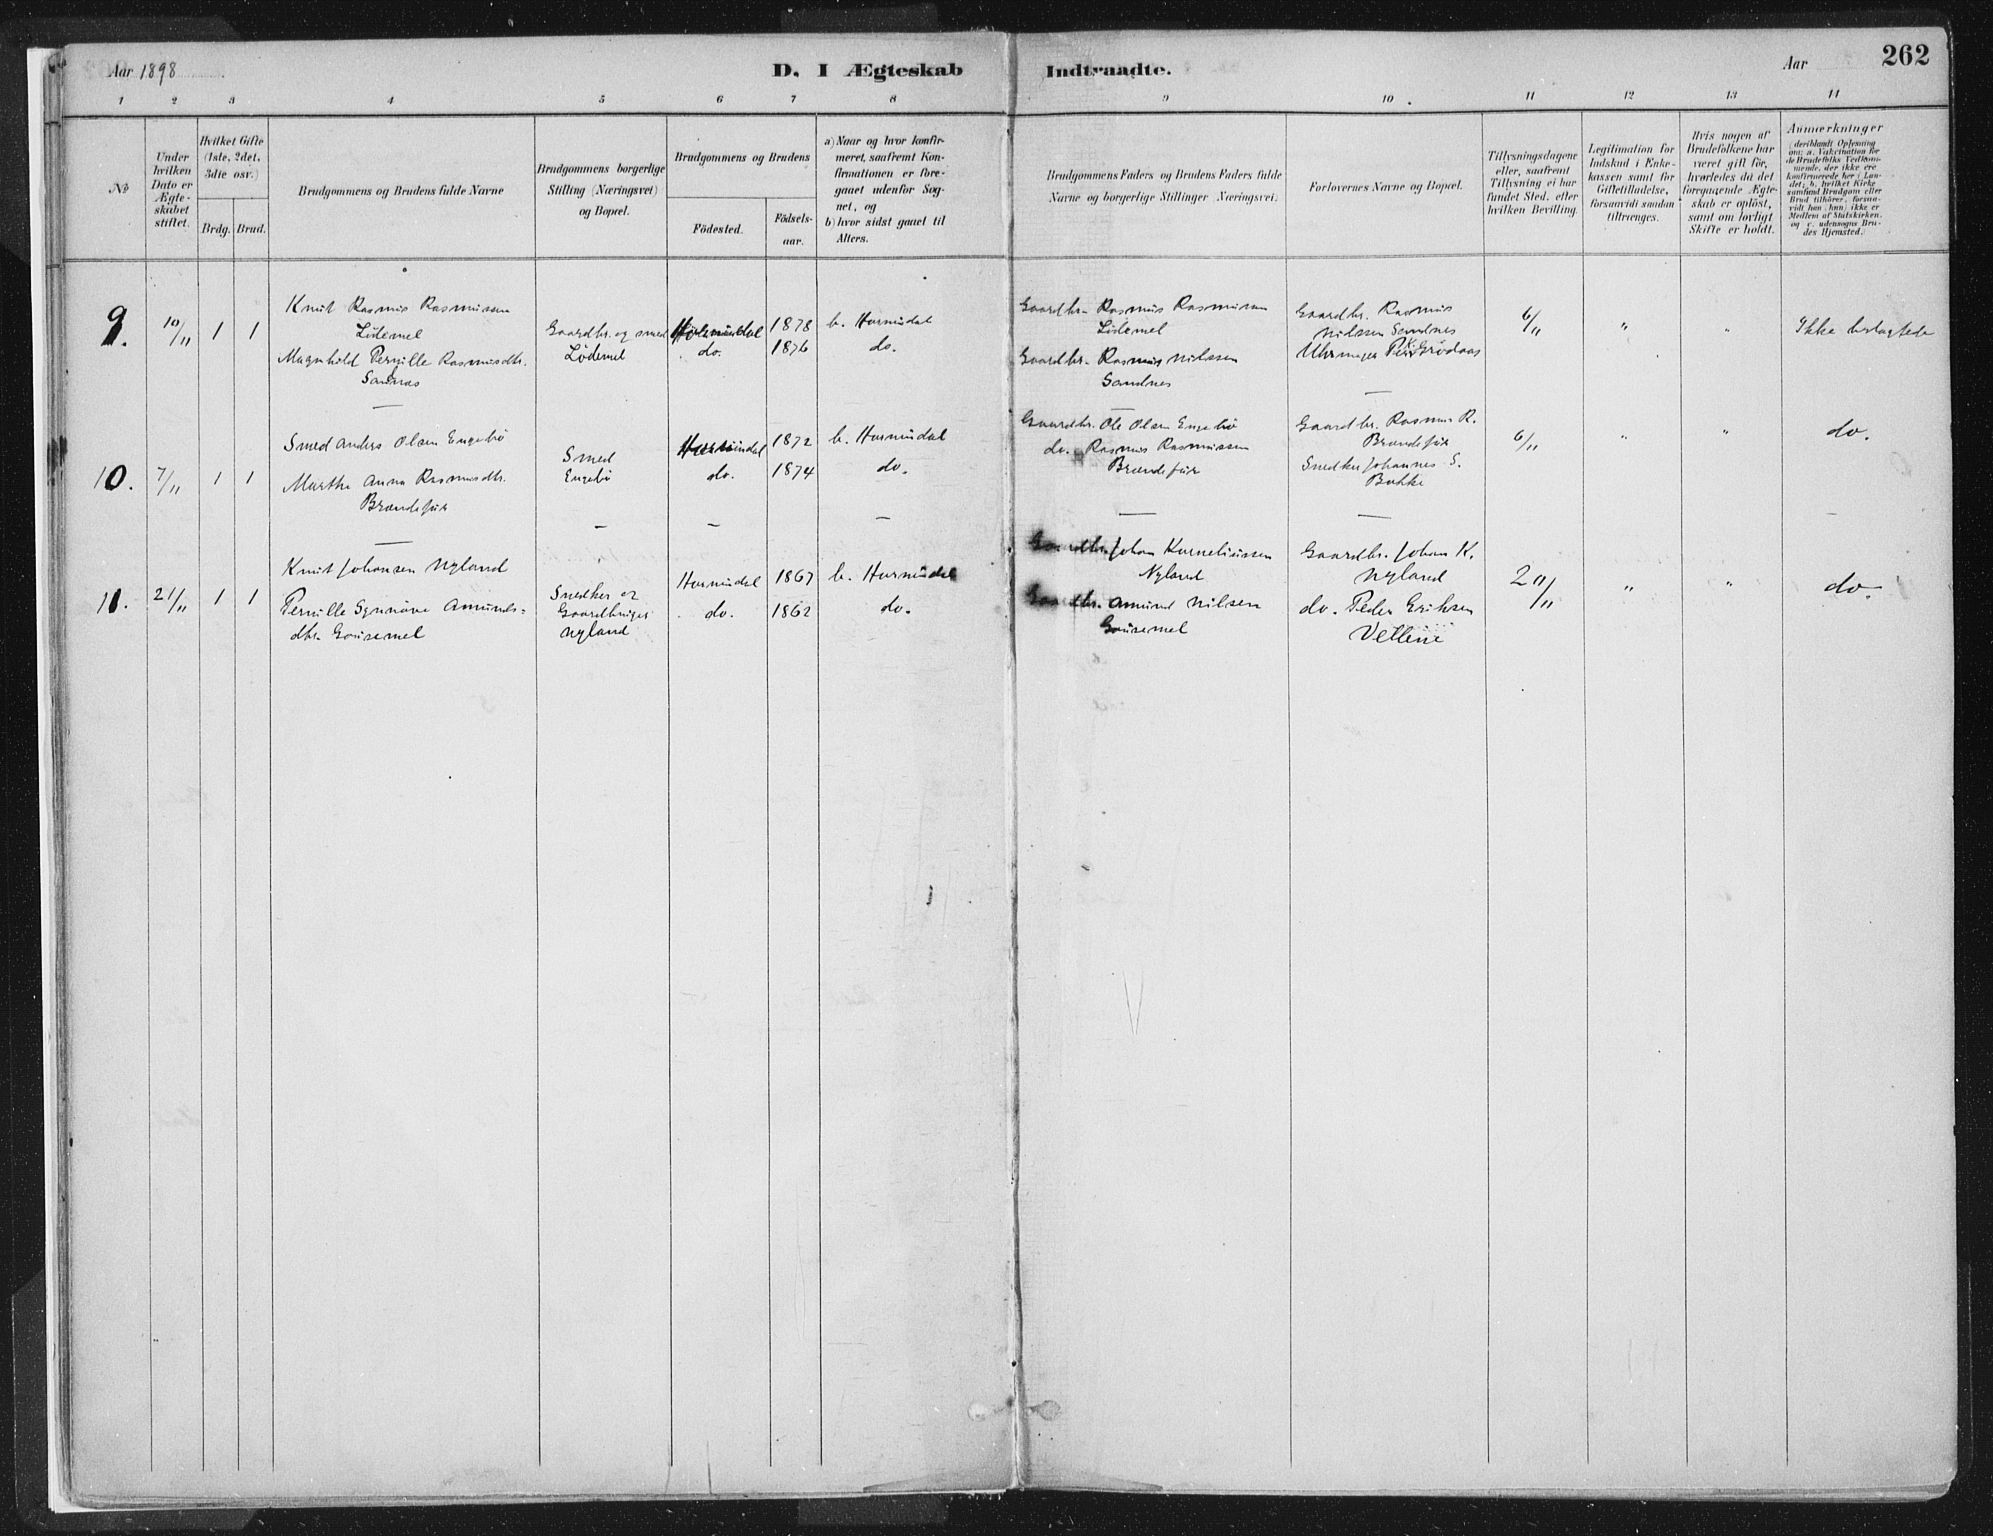 Aar 1898
D. I Ægteskab Indtraadte.
Aar
262
1 2 3 4 5 6 7 8 9 10 11 12 13 14
No
Under hvilken Dato er Ægteskabet stiftet.
Hvilket Gifte (1ste, 2det, 3die osv.)
Brdg. Brud.
Brudgommens og Brudens fulde Navne
Brudgommens borgerlige Stilling (Næringsvei) og Bopæl.
Brudgommens og Brudens
Födested.
Födsels-aar.
a) Naar og hvor konfirmeret, saafremt Konfirmationen er foregaaet udenfor Sognet, og
b) hvor sidst gaaet til Alters.
Brudgommens Faders og Brudens Faders fulde Navne og borgerlige Stillinger (Næringsvei)
Forlovernes Navne og Bopæl.
Tillysningsdagene eller, saafremt Tillysning ei har fundet Sted, efter hvilken Bevilling.
Legitimation for Indskud i Enkekassen samt for Giftetilladelse, forsaavidt saadan tiltrænges.
Hvis nogen af Brudefolkene har været gift för, hvorledes da det foregaaende Ægteskab er oplöst, samt om lovligt Skifte er holdt.
Anmerkninger (deriblandt Oplysning om: a. Vakcination for de Brudefolks Vedkommende, der ikke ere konfirmerede her i Landet; b. hvilket Kirkesamfund Brudgom eller Brud tilhörer, forsaavidt han (hun) ikke er Medlem af Statskirken, og c. udensogns Brudes Hjemsted.)
9. 10/11 1 1
Knut Rasmus Rasmussen
Lödemel
Magnhild Pernille Rasmusdtr.
Sandnæs
Gaardbr. og smed
Lödemel
Hornindal 1878
do. 1876
b. Hornindal
do.
Gaardbr. Rasmus Rasmussen
Lödemel
Gaardbr. Rasmus Nilssen
Sandnes
Gaardbr. Rasmus
Nilssen Sandnes
Uhrmager Grodaas
6/11
" "
Ikke beslagtede
10. 7/11 1 1
Smed Anders Olsen Engebö
Marthe Anna Rasmusdtr.
Brændsfur
Smed
Engebö
Hornindal 1872
do. 1874
b. Hornindal
do.
Gaardbr. Ole Olsen Engebö
do. Rasmus Rasmussen
Brændefur
Gaardbr. Rasmus R.
Brændefur
Snedker Johannes S.
Bakke
6/11
" "
do.
11. 21/11 1 1
Knut Johansen Nyland
Pernille Synnöve Amunds=
dtr. Gausemel
Snedker og
Gaardbruger
Nyland
Hornindal 1867
do. 1862
b. Hornindal
do.
Gaardbr. Johan Korneliussen
Nyland
Gaardbr. Amund Nilsen
Gausemel
Gaardbr. Johan K.
Nyland
do. Peder Eriksen
" "
do.